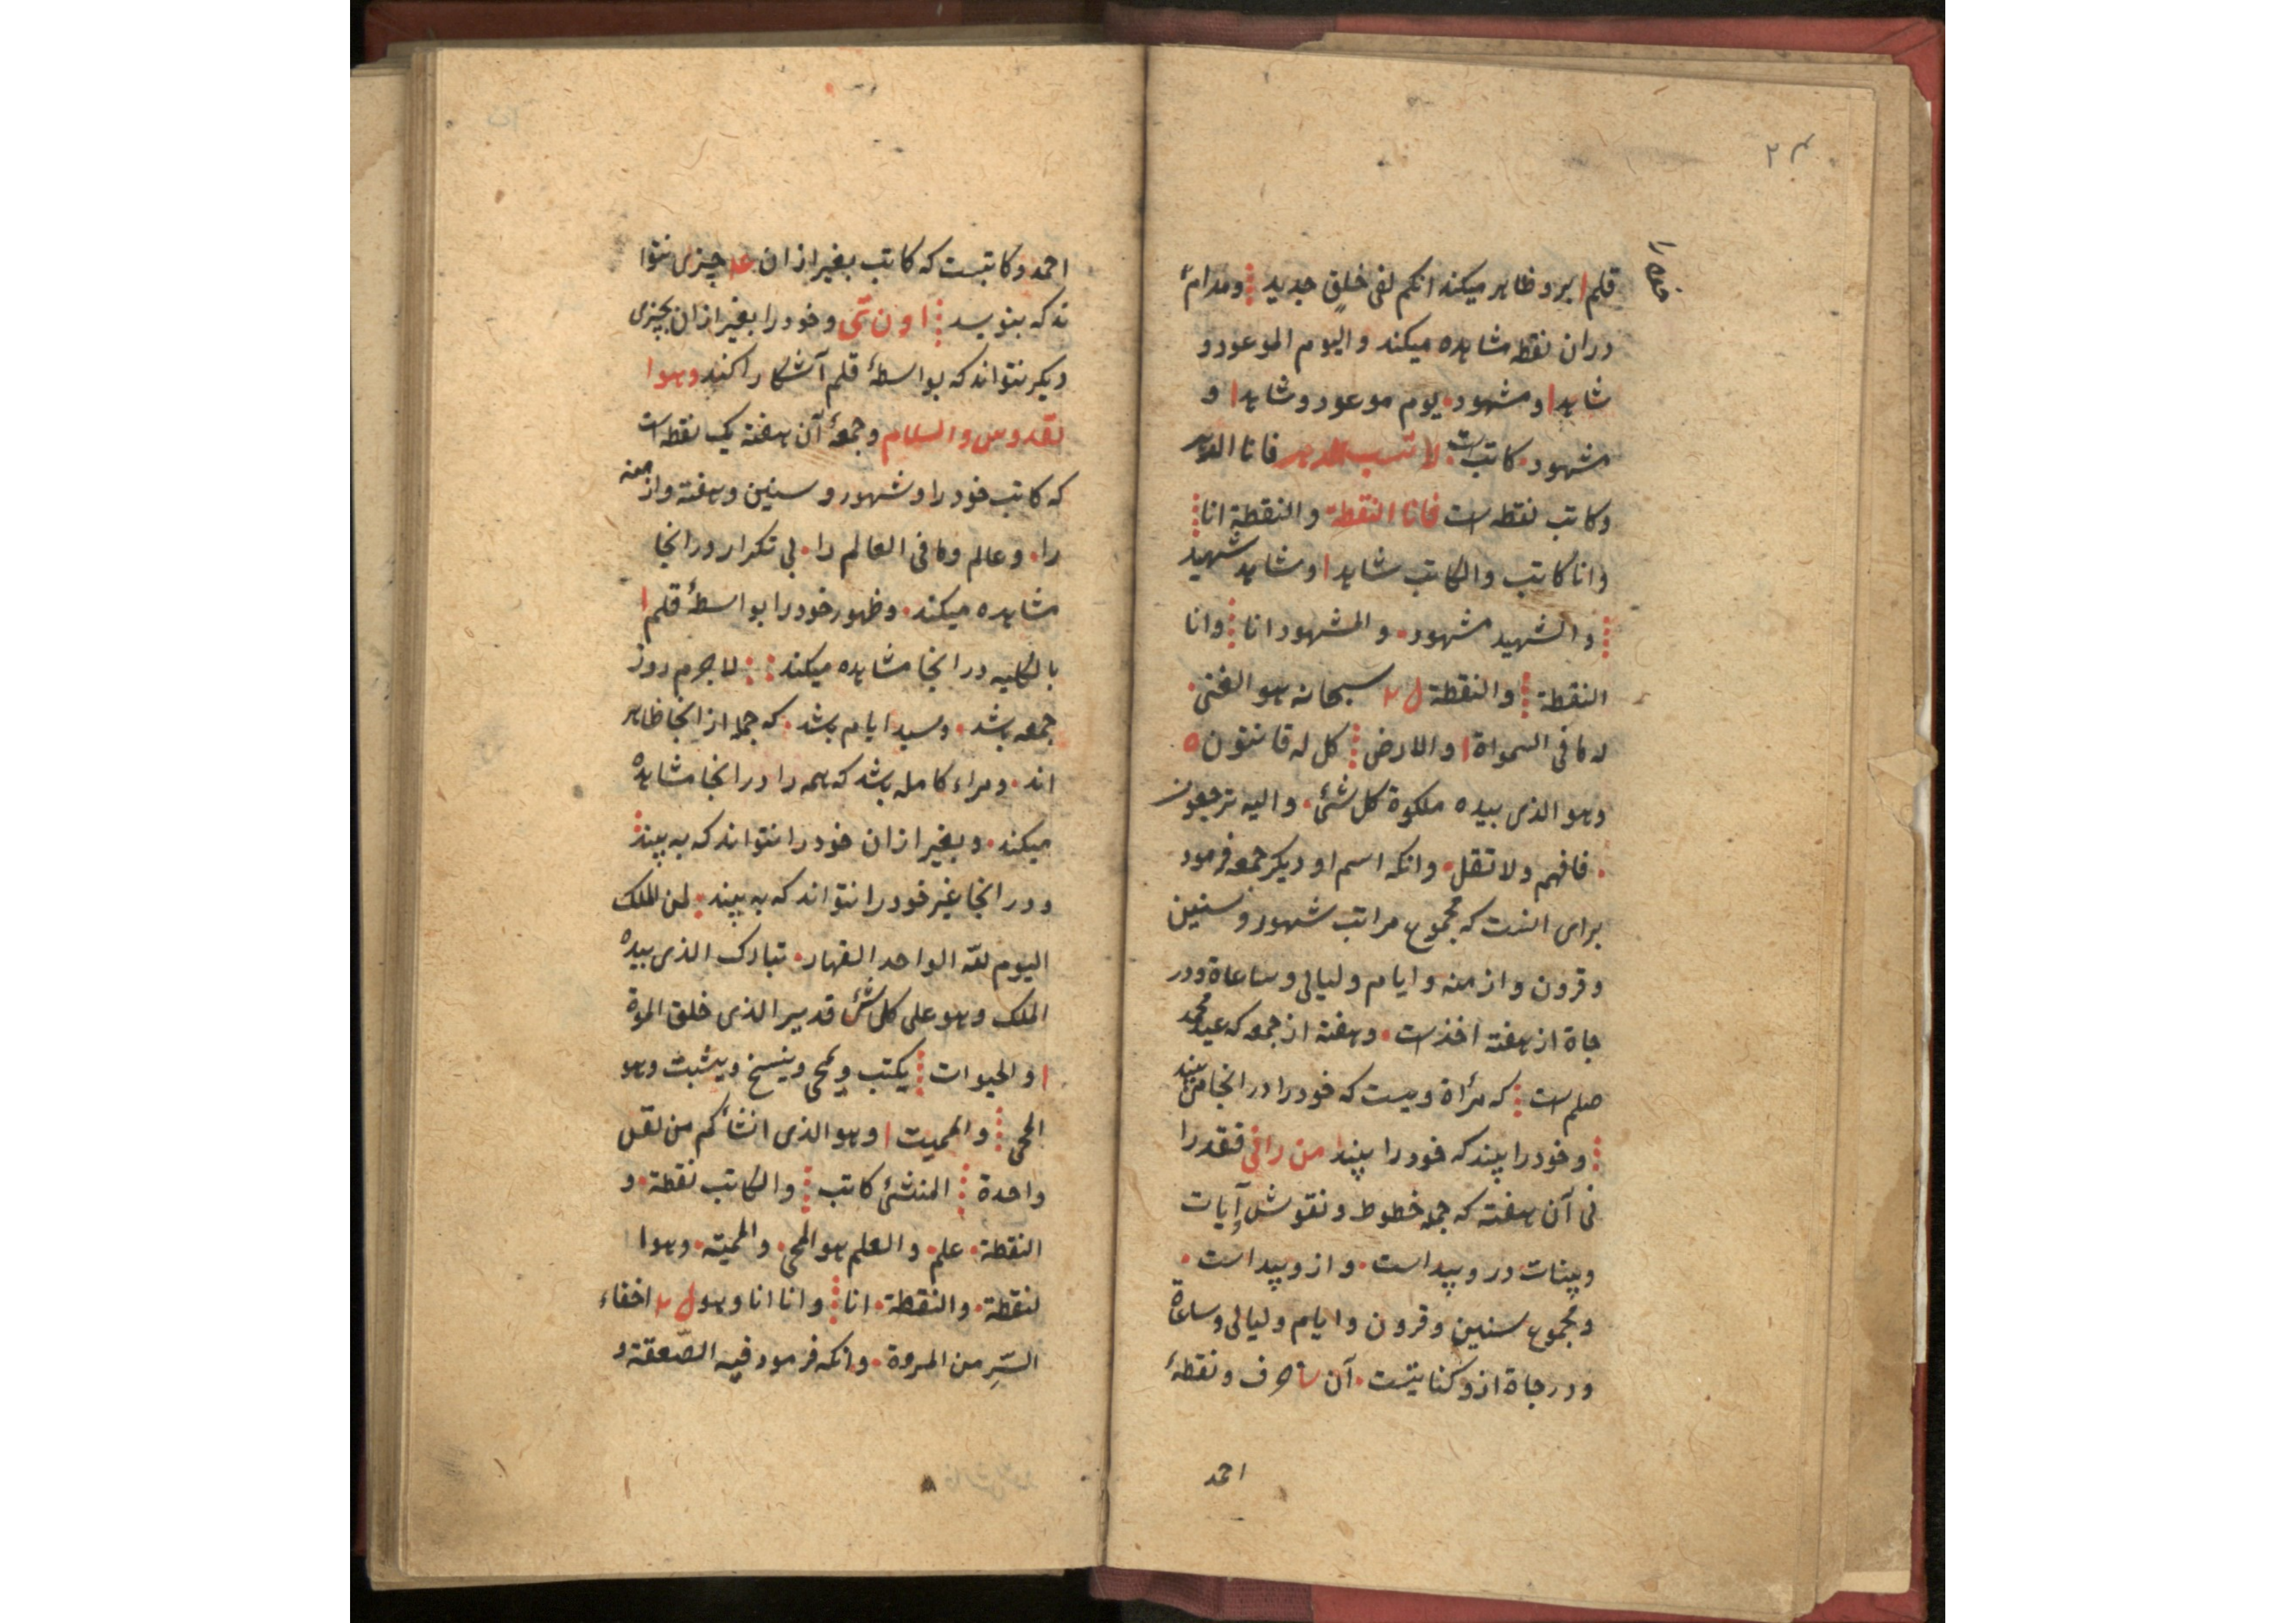 ۲۴
قلم ا برو ظاهر میکند انکم لفی خلق جدید ومدام
دران نقطه مشاهده میکند والیوم الموعود و
شاهد ا ومشهود یوم موعود وشاهد ا و
مشهود کاتب است لا تسب الدهر فانا الدهر
وکاتب نقطه است فانا النقطة والنقطة انا
وانا کاتب والکاتب شاهد ا وشاهد شهید
والشهید مشهود والمشهود انا وانا
النقطة والنقطة سبحانه هو الغنی
له ما فی السمواة ا والارض کل له قانتون
وهو الذی بیده ملکوة کل شئ والیه ترجعون
فافهم ولا تقل وانکه اسم او دیکر جمعه فرمود
برای انست که مجموع مراتب شهور و سنین
وقرون وازمنه وایام ولیالی وساعاة ودر
جاة از هفته اخذ است وهفته از جمعه که عید محمد
صلم است که مرأة ویست که خود را در انجا می بیند
وخود را بیند که خود را بیند من رانی فقد را
نی آن هفته که جمله خطوط ونقوش وآیات
وبینات در و پیداست واز و پیداست
ومجموع سنین وقرون وایام ولیالی وساعاة
ودرجاة ازو کنایتست آن حرف ونقطهٔ
احمد
احمد وکاتبست که کاتب بغیر ازان چیزی نتوا
ند که بنویسد وخود را بغیر ازان بچیزی
دیکر نتواند که بواسطهٔ قلم آشکارا کند وهو ا
لقدوس والسلام وجمعهٔ آن هفته یک نقطه است
که کاتب خود را وشهور و سنین وهفته وازمنه
را وعالم وما فی العالم را بی تکرار در انجا
مشاهده میکند وظهور خود را بواسطهٔ قلم ا
بالکلیه در انجا مشاهده میکند لاجرم روز
جمعه باشد وسید ایام باشد که جمله از انجا ظاهر
اند ومراء کامله باشد که همه را در انجا مشاهده
میکند وبغیر ازان خود را نتواند که به بیند
ودر انجا غیر خود را نتواند که به بیند لمن الملک
الیوم لله الواحد القهار تبارک الذی بیده
الملک وهو علی کل شئ قدیر الذی خلق الموة
ا والحیوات یکتب ویمحی وینسخ ویثبت وهو
المحی والممیت ا وهو الذی انشأکم من نفس
واحدة المنشئ کاتب والکاتب نقطة و
النقطة علم والعلم هو المحی والممیته وهو ا
لنقطة والنقطة انا وانا انا وهو اخفاء
السّر من المروة وانکه فرمود فیه الصّعقة و